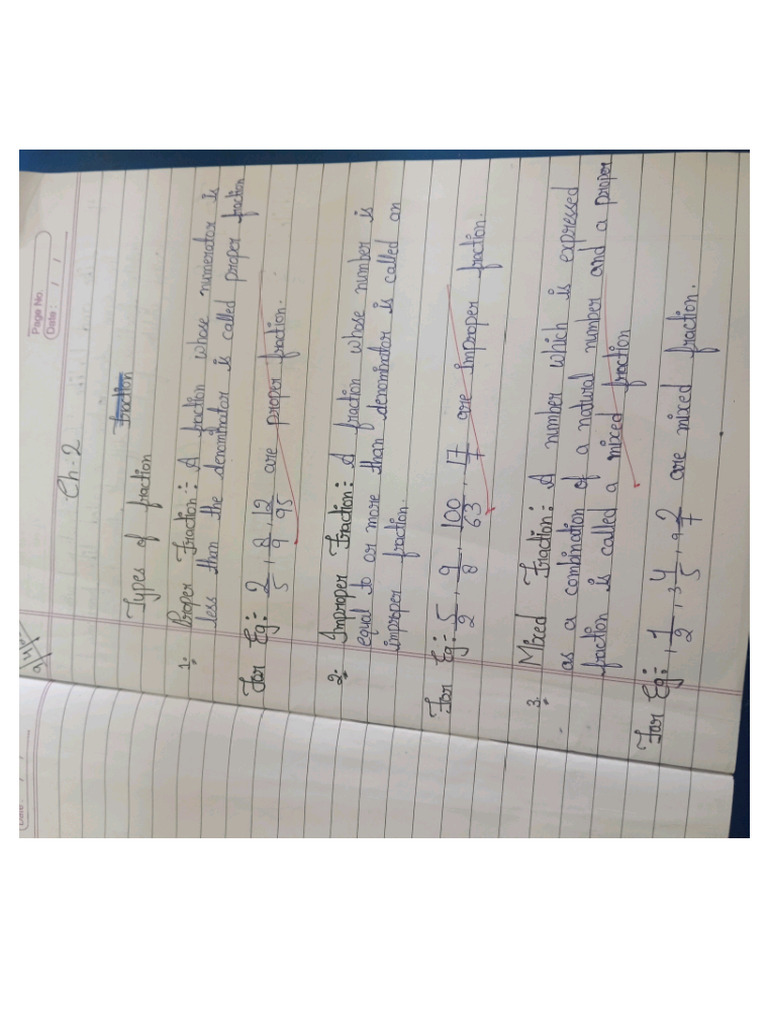 Page No.
Date: / /
Ch-2
Fraction
Types of fraction
1. Proper Fraction:- A fraction whose numerator is
less than the denominator is called proper fraction
For Eg:- 2/5, 8/9, 12/95 are proper fraction.
2. Improper Fraction:- A fraction whose number is
equal to or more than denominator is called an
improper fraction.
For Eg:- 5/2, 9/8, 100/63, 17/7 are improper fraction.
3. Mixed Fraction:- A number which is expressed
as a combination of a natural number and a proper
fraction is called a mixed fraction
For Eg:- 1 1/2, 3 4/5, 9 2/7 are mixed fraction.